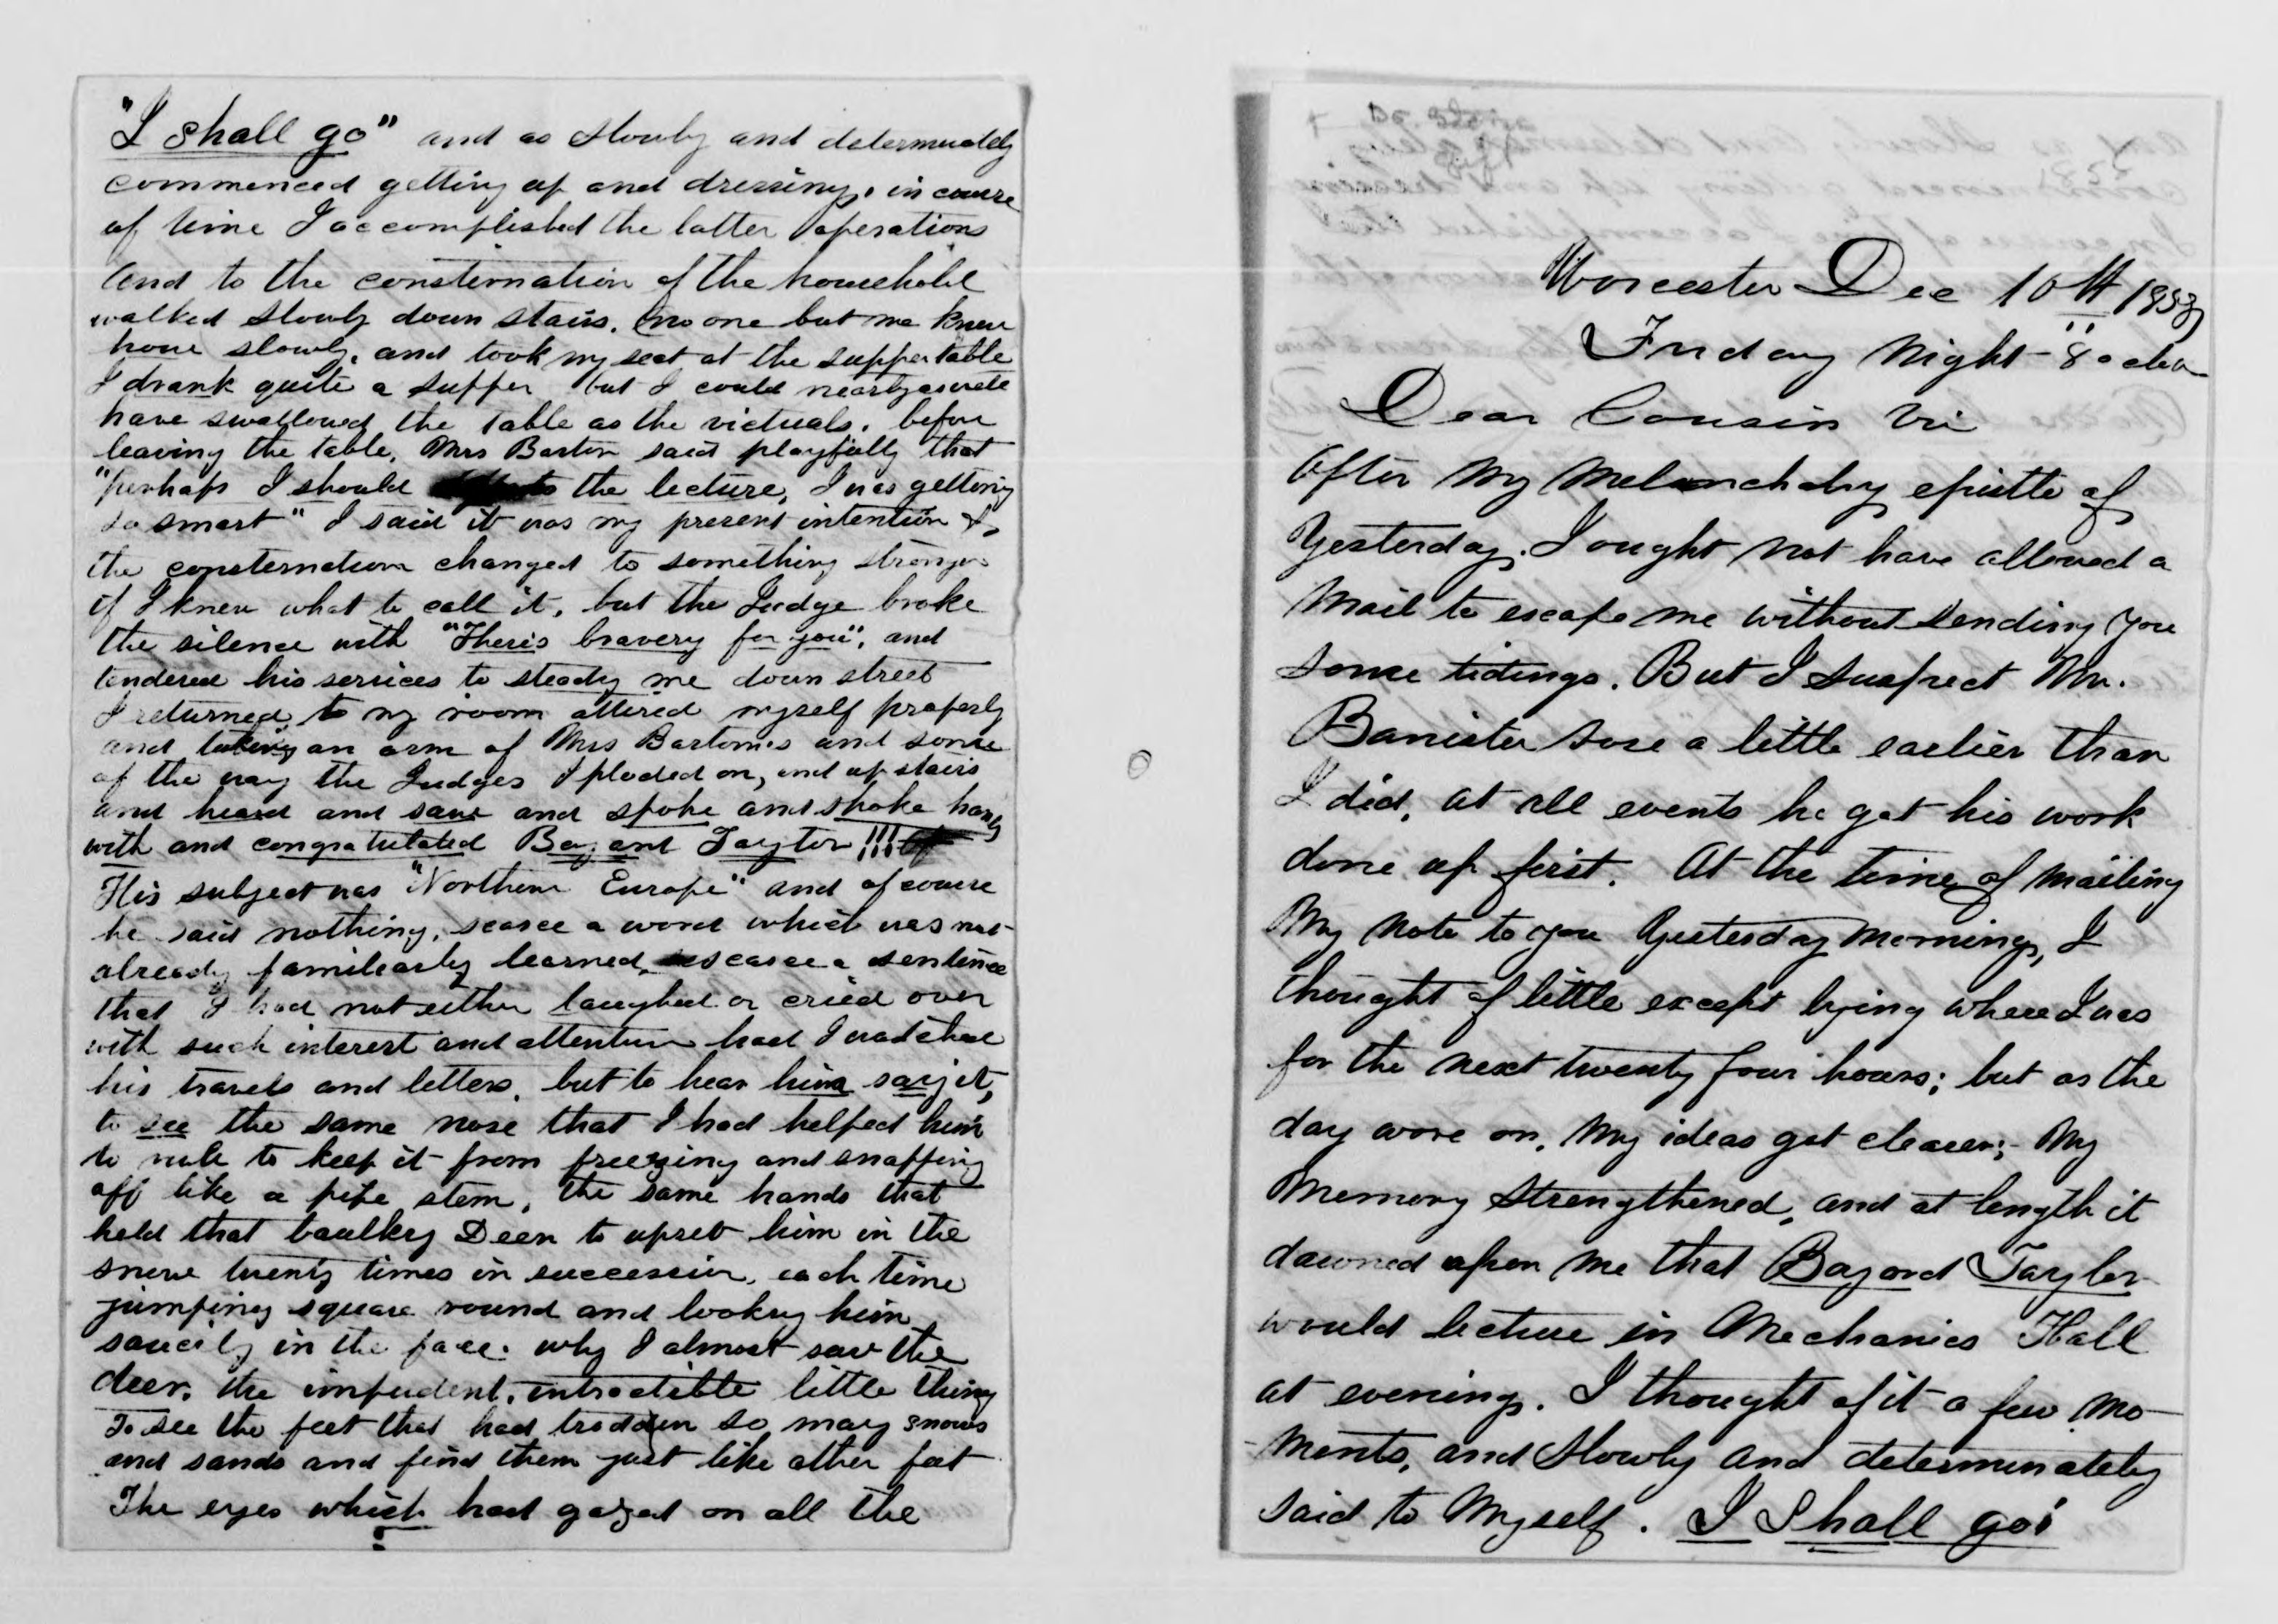 Worcester Dec 10th 1858
Friday Night - 8 oclo
Dear Cousin Vic
After my melancholy epistle of
Yesterday, I ought not have allowed a
Mail to escape me without sending you
some tidings. But I suspect Mr.
Banister rose a little earlier than
I did, at all events he got his work
done up first. At the time of mailing
My note to you Yesterday morning, I
thought of little except lying where I was
for the next twenty four hours; but as the
day wore on, my ideas got clearer; - My
Memory strengthened, and at length it
dawned upon me that Bayard Taylor
would lecture in Mechanics Hall
at evening. I thought of it a few mo
ments, and slowly and determinately
said to myself. I Shall go!
"I shall go" and as slowly and determinately
commenced getting up and dressing, in course
of time I accomplished the latter operations
and to the consternation of the household
walked slowly down stairs. no one but me knew
how slowly, and took my seat at the supper table
I drank quite a supper but I could nearly as well
have swallowed the table as the victuals. before
leaving the table, Mrs Barton said playfully that
"perhaps I should to the lecture, I was getting
so smart" I said it was my present intention &
the consternation changed to something stronger
if I knew what to call it, but the Judge broke
the silence with "There's bravery for you", and
tendered his services to steady me down street
I returned to my room attired myself properly
and taking an arm of Mrs Bartons and some
of the way the Judges I ploded on, and up stairs
and heard and saw and spoke and shoke hands
with and congratulated Bayard Taylor!!!
His subject was "Northern Europe" and of course
he said nothing, scarce a word which was not
already familiarly learned, scarce a sentence
that I had not either laughed or cried over
with such interest and attention had I watched
his travels and letters, but to hear him say it,
to see the same nose that I had helped him
to rub to keep it from freezing and snapping
off like a pipe stem, the same hands that
held that baulky Deer to upset him in the
snow twenty times in succession, each time
jumping square round and looking him
saucily in the face. why I almost saw the
deer, the impudent, intractible little thing
To see the feet that had trodden so many snows
and sands and find them just like other feet
The eyes which had gazed on all the